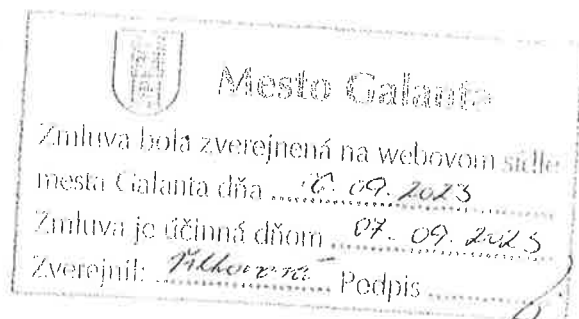 Mesto Galanta
Zmluva bola zverejnená na webovom sídle
mesta Galanta dňa .09.2023
Zmluva je účinná dňom 07. 09. 2023
Zverejnil: Podpis